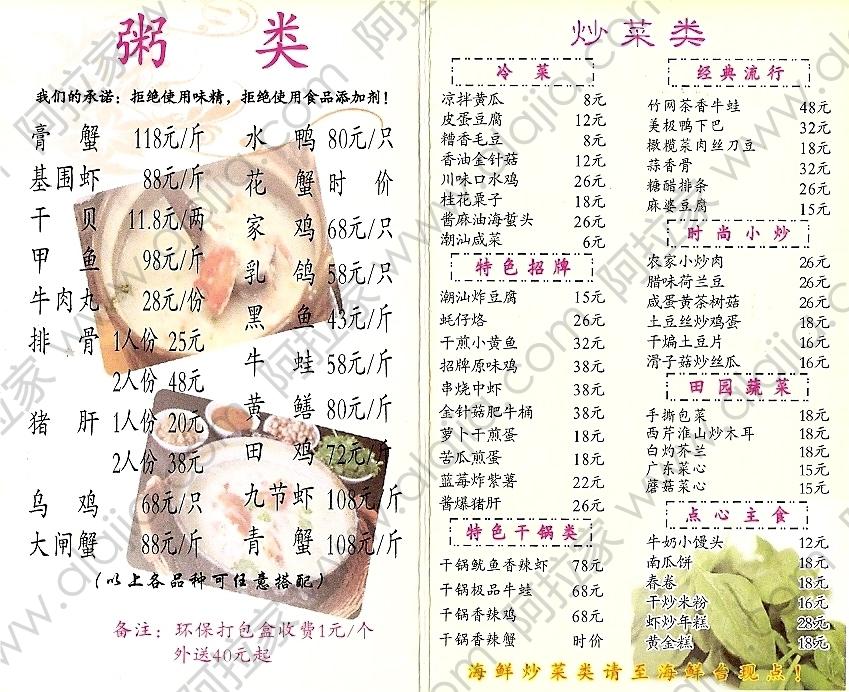 粥 类
我们的承诺：拒绝使用味精，拒绝使用食品添加剂！
膏 蟹 118元/斤
基围虾 88元/斤
干 贝 11.8元/两
甲 鱼 98元/斤
牛肉丸 28元/份
排 骨 1人份 25元
2人份 48元
猪 肝 1人份 20元
2人份 38元
乌 鸡 68元/只
大闸蟹 88元/斤
水 鸭 80元/只
花 蟹 时 价
家 鸡 68元/只
乳 鸽 58元/只
黑 鱼 43元/斤
牛 蛙 58元/斤
黄 鳝 80元/斤
田 鸡 72元/斤
九节虾 108元/斤
青 蟹 108元/斤
（以上各品种可任意搭配）
备注：环保打包盒收费1元/个
外送40元起
炒菜类
冷 菜
凉拌黄瓜 8元
皮蛋豆腐 12元
糟香毛豆 8元
香油金针菇 12元
川味口水鸡 26元
桂花栗子 18元
酱麻油海蜇头 26元
潮汕咸菜 6元
特色招牌
潮汕炸豆腐 15元
蚝仔烙 26元
干煎小黄鱼 32元
招牌原味鸡 38元
串烧中虾 38元
金针菇肥牛桶 38元
萝卜干煎蛋 18元
苦瓜煎蛋 18元
蓝莓炸紫薯 22元
酱爆猪肝 26元
特色干锅类
干锅鱿鱼香辣虾 78元
干锅极品牛蛙 68元
干锅香辣鸡 68元
干锅香辣蟹 时价
经典流行
竹网茶香牛蛙 48元
美极鸭下巴 32元
橄榄菜肉丝刀豆 18元
蒜香骨 32元
糖醋排条 26元
麻婆豆腐 15元
时尚小炒
农家小炒肉 26元
腊味荷兰豆 26元
咸蛋黄茶树菇 26元
土豆丝炒鸡蛋 18元
干煸土豆片 16元
滑子菇炒丝瓜 16元
田园蔬菜
手撕包菜 18元
西芹淮山炒木耳 18元
白灼芥兰 18元
广东菜心 15元
蘑菇菜心 15元
点心主食
牛奶小馒头 12元
南瓜饼 18元
春卷 18元
干炒米粉 16元
虾炒年糕 28元
黄金糕 18元
海鲜炒菜类请至海鲜台现点！
阿拉家 www.alajia.com